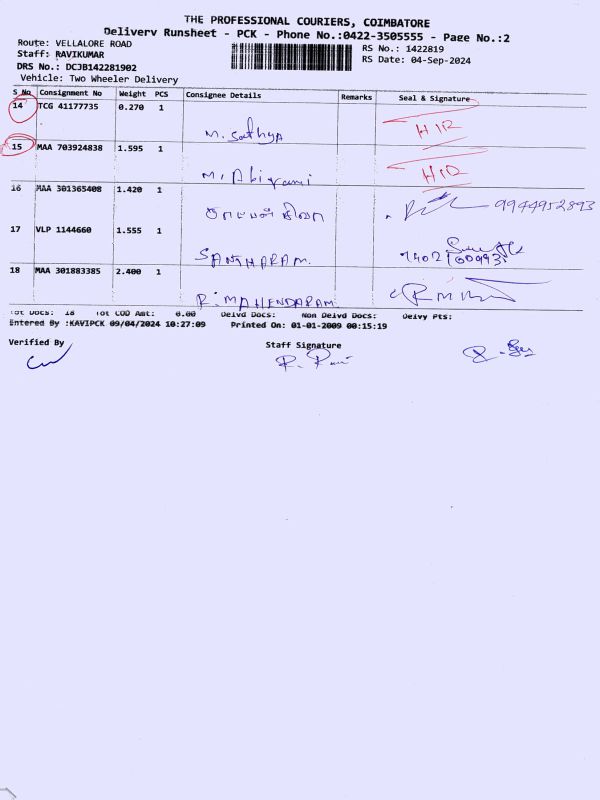 THE PROFESSIONAL COURIERS, COIMBATORE
Delivery Runsheet - PCK - Phone No.:0422-3505555 - Page No.:2
Route: VELLALORE ROAD
RS No.: 1422819
Staff: RAVIKUMAR
RS Date: 04-Sep-2024
DRS No.: DCJB142281902
Vehicle: Two Wheeler Delivery
S No Consignment No Weight PCS Consignee Details Remarks Seal & Signature
14 TCG 41177735 0.270 1
M. Sathya HIR
15 MAA 703924838 1.595 1
M. Abirami HIR
16 MAA 301365408 1.420 1
9944952893
17 VLP 1144660 1.555 1
SANTHARAM.
18 MAA 301883385 2.400 1
R. MAHENDARAM.
Tot Docs: 18 Tot COD Amt: 0.00 Delvd Docs: Non Delvd Docs: Delvy Pts:
Entered By :KAVIPCK 09/04/2024 10:27:09 Printed On: 01-01-2009 00:15:19
Verified By Staff Signature